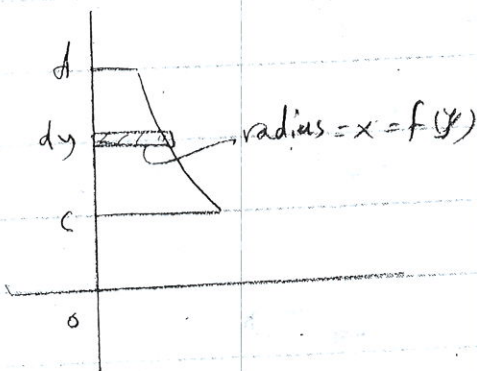 d
dy
radius = x = f(y)
c
o